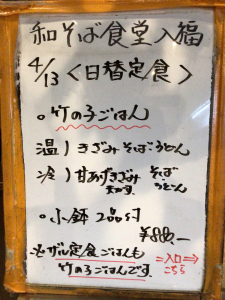 和そば食堂入福
4/13<日替定食<
○竹の子ごはん
温)きざみそば・うどん
冷)甘あげきざみ そば・うどん
○小鉢 2品付
¥880,ー
ザル定食ごはんも
竹の子ごはんです。
=入口⇒
こちら